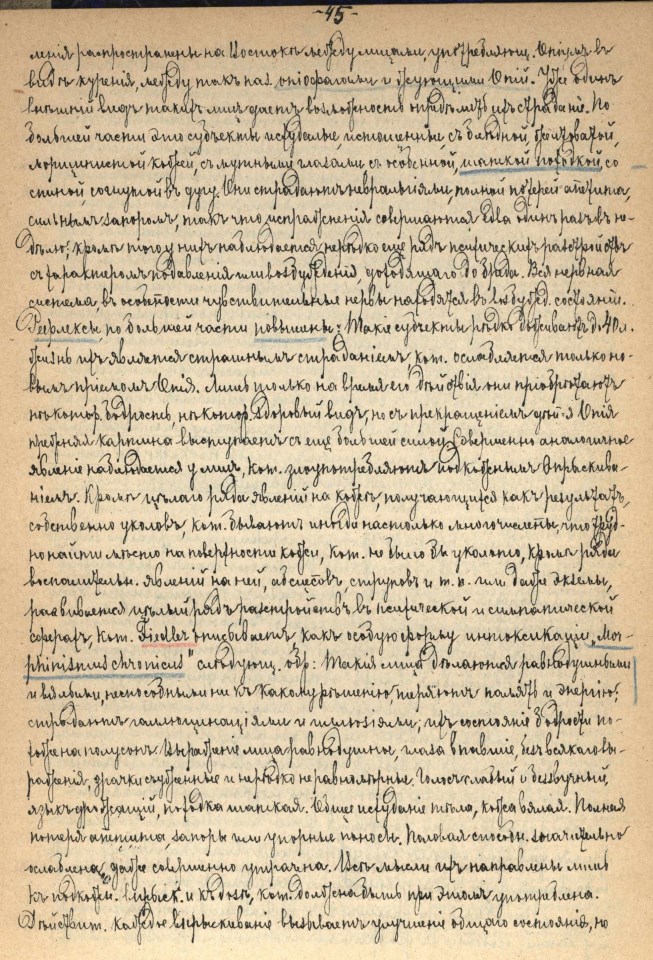 -45-
ленія распространены на Востокѣ между лицами, употребляющ. Опіумъ въ
видѣ куренія, между такъ наз. опіофагами и жующими Опій. Уже одинъ
внѣшній видъ такихъ лицъ даетъ возможность опредѣлить ихъ страданіе. По
большей части это субъекты исхудалые, истощенные, съ блѣдной, желтоватой,
морщинистой кожей, съ мутными глазами съ особенной, шаткой походкой, со
спиной согнутой въ дугу. Они страдаютъ невралгіями, полной потерей аппетита,
сильнымъ запоромъ, такъ что испражненія совершаются едва одинъ разъ въ не-
дѣлю; кромѣ того у нихъ наблюдается нерѣдко еще рядъ психическихъ разстройствъ
съ характеромъ подавленія или возбужденія, доходящаго до бреда. Вся нервная
система, въ особенности чувствительные нервы находятся въ возбужд. состояніи.
Рефлексы, по большей части повышены. Такіе субъекты рѣдко доживаютъ до 40 л.
Жизнь ихъ является страшнымъ страданіемъ, кот. ослабляется только но-
вымъ пріемомъ Опія. Лишь только на время его дѣйствія они пріобрѣтаютъ
нѣкотор. бодрость, нѣкотор. здоровый видъ, но съ прекращеніемъ дѣй-я Опія
прежняя картина выступаетъ съ еще большей силой. Совершенно аналогичное
явленіе наблюдается у лицъ, кот. злоупотребляютъ подкожнымъ впрыскива-
ніемъ. Кромѣ цѣлаго ряда явленій на кожѣ, получающихся какъ результатъ,
собственно уколовъ, кот. бываютъ иногда настолько многочислены, что труд-
но найти мѣсто на поверхности кожи, кот. не было бы уколото, кромѣ ряда
воспалительн. явленій на ней, абсцессовъ, струповъ и т. п. или даже экземы,
развивается цѣлый рядъ разстройствъ въ психической и симпатической
сферахъ, кот. Fiedler описываетъ какъ особую форму интоксикаціи „Mor-
phinismus chronicus" слѣдующ. обр: Такія лица дѣлаются равнодушными
и вялыми, неспособными ни къ какому рѣшенію теряютъ память и энергію;
страдаютъ галлюцинаціями и иллюзіями; ихъ состояніе бодрости по-
хоже на полусонъ. Выраженіе лица равнодушное, глаза впавшіе, безъ всякаго вы-
раженія, зрачки съуженные и нерѣдко неравномѣрные. Голосъ слабый и беззвучный,
языкъ дрожащій, походка шаткая. Общее исхуданіе тѣла, кожа вялая. Полная
потеря аппетита, запоры или упорные поносы. Половая способн. значительно
ослаблена, даже совершенно утрачена. Всѣ мысли ихъ направлены лишь
къ подкожн. впрыск. и къ дозѣ, кот. должна быть при этомъ употреблена.
Дѣйствит. каждое впрыскиваніе вызываетъ улучшеніе общаго состоянія, но